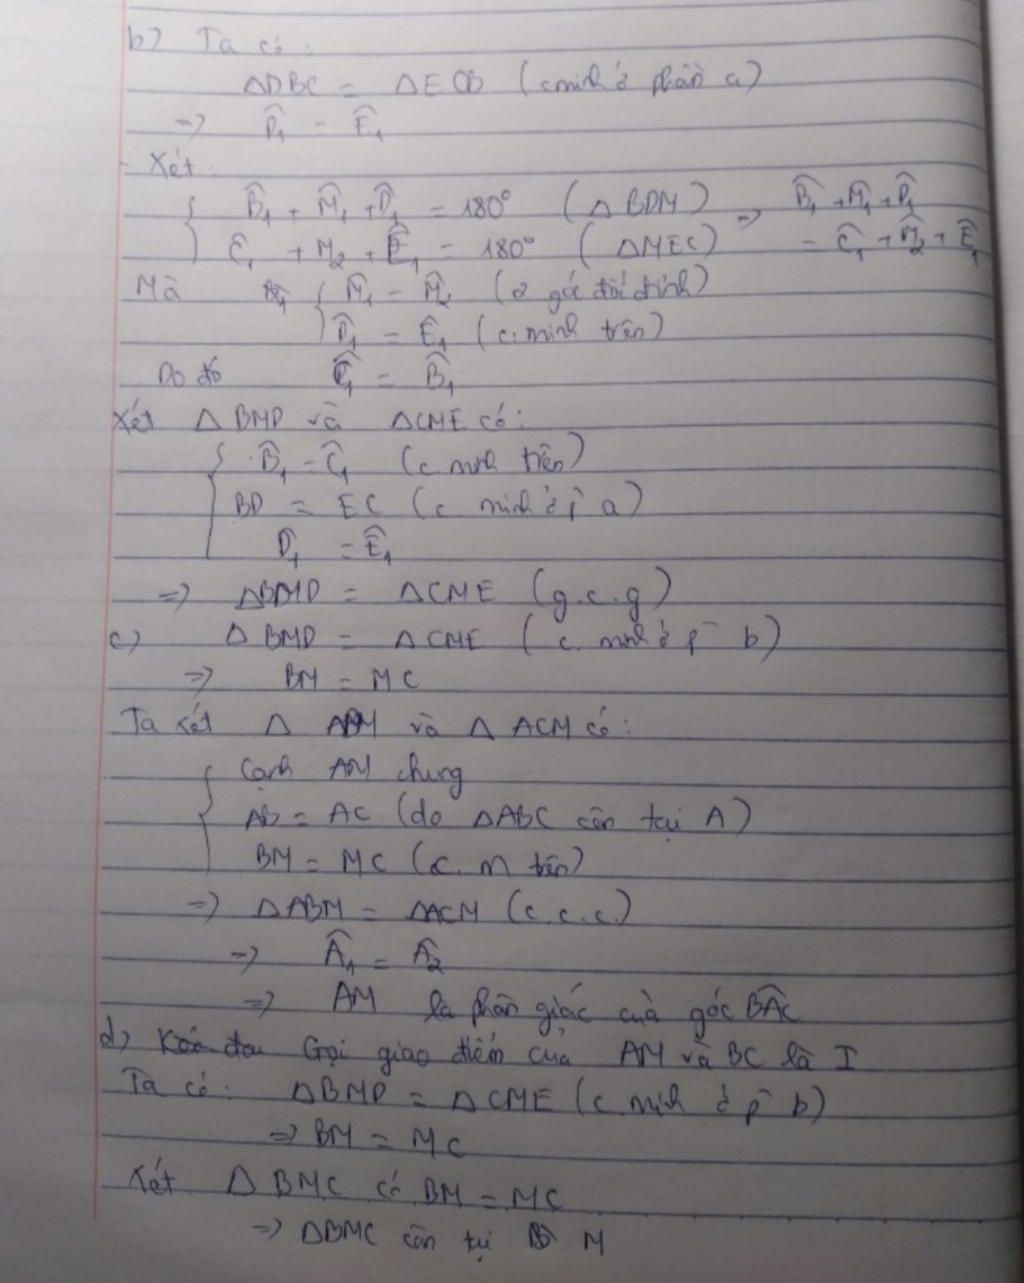 b) Ta có:
ΔDBC = ΔECB (cminh ở phần a)
=> D̂₁ = Ê₁
- Xét:
{ B̂₁ + M̂₁ + D̂₁ = 180° (Δ BDM) => B̂₁ + M̂₁ + D̂₁
Ĉ₁ + M̂₂ + Ê₁ = 180° (ΔMEC) = Ĉ₁ + M̂₂ + Ê₁
Mà { M̂₁ = M̂₂ (2 góc đối đỉnh)
D̂₁ = Ê₁ (c. minh trên)
Do đó Ĉ₁ = B̂₁
Xét Δ BMD và ΔCME có:
{ B̂₁ = Ĉ₁ (c. minh trên)
BD = EC (c minh ở p̄ a)
D̂₁ = Ê₁
=> ΔBMD = ΔCME (g.c.g)
c) Δ BMD = ΔCME (c. minh ở p̄ b)
=> BM = MC
Ta xét Δ ABM và Δ ACM có:
{ Cạnh AM chung
AB = AC (do ΔABC cân tại A)
BM = MC (c. m trên)
=> ΔABM = ΔACM (c.c.c.)
=> Â₁ = Â₂
=> AM là phân giác của góc BÂC
d) Gọi giao điểm của AM và BC là I
Ta có: ΔBMD = ΔCME (c. minh ở p̄ b)
=> BM = MC
Xét Δ BMC có BM = MC
=> ΔBMC cân tại M